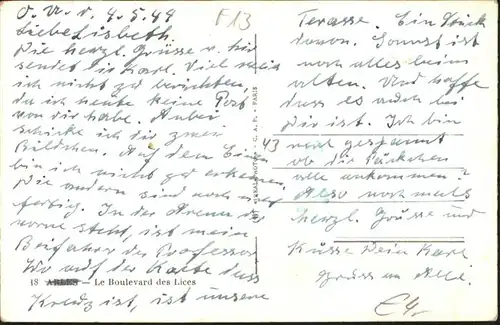 O. U. d. 4.5.44
F13
Liebe Lisbeth.
Die herzl. Grüsse v. hir
sendet dir Karl. Viel weis
ich nicht zu berichten,
da ich heute keine Post
von dir habe. Anbei
schicke ich dir zwei
Bildchen. Auf dem Einen
bin ich nicht zu erkennen,
die andern sind noch nicht
fertig. In der Arena da
vorne steht, ist mein
Beifahrer der Professor
Wo auf der Karte das
Kreuz ist, ist unsere
Terasse. Ein Stück
davon. Sonnst ist
noch alles beim
alten. Und hoffe
dass es auch bei
Dir ist. Ich bin
mal gespannt
ob die Päckchen
alle ankommen?
Also nochmals
herzl. Grüsse und
Küsse Dein Karl
Gruss an Alle.
18 ARLES — Le Boulevard des Lices
E4.-